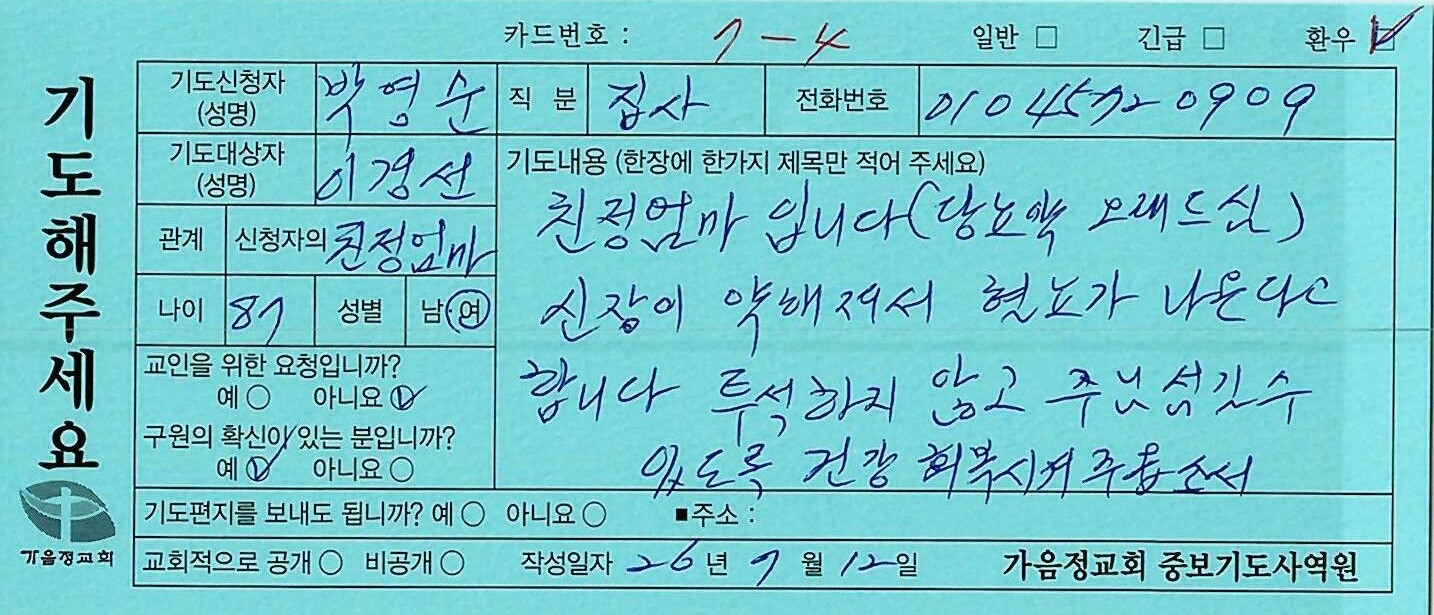 카드번호 : 7-4 일반 □ 긴급 □ 환우 ☑
기도해주세요
기도신청자 (성명) 박영순 직 분 집사 전화번호 010 4572 0909
기도대상자 (성명) 이경선
기도내용 (한장에 한가지 제목만 적어 주세요)
친정엄마 입니다(당뇨약 오래드심)
신장이 약해져서 혈뇨가 나온다고
합니다 투석하지 않고 주님 섬길수
있도록 건강 회복시켜주옵소서
관계 신청자의 친정엄마
나이 87 성별 남·여
교인을 위한 요청입니까?
예○ 아니요☑
구원의 확신이 있는 분입니까?
예☑ 아니요○
기도편지를 보내도 됩니까? 예○ 아니요○ ■주소 :
교회적으로 공개○ 비공개○ 작성일자 26년 7월 12일 가음정교회 중보기도사역원
가음정교회